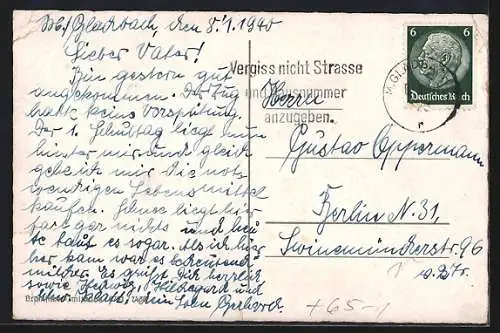 M./Gladbach, den 8.1.1940
Lieber Vater!
Bin gestern gut
angekommen. Der Zug
hatte keine Verspätung.
Der 1. Schultag liegt nun
hinter mir und gleich
gehe ich mir die not-
wendigen Lebensmittel
kaufen. Schnee liegt hier
fast gar nichts und heu-
te taut es sogar. Als ich hier-
her kam war es bedeutend
milder. Es grüßt Dich herzlich
sowie Hedwig, Hildegard und
Dein Sohn Gerhard.
Vergiss nicht Strasse
und Hausnummer
anzugeben.
6 6
Deutsches Reich
M.GLADB
Herrn
Gustav Oppermann
Berlin N. 31,
Swinemünderstr. 96
+65-